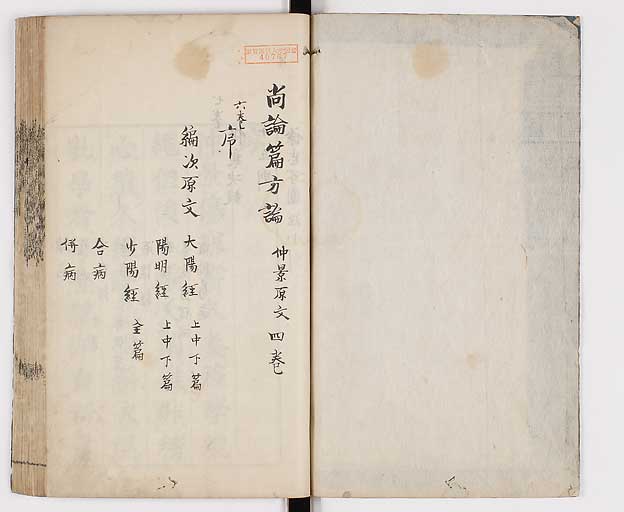 尚論篇方論 仲景原文 四巻
六巻
序
編次原文 大陽経 上中下篇
陽明経 上中下篇
少陽経 全篇
合病
併病
40767